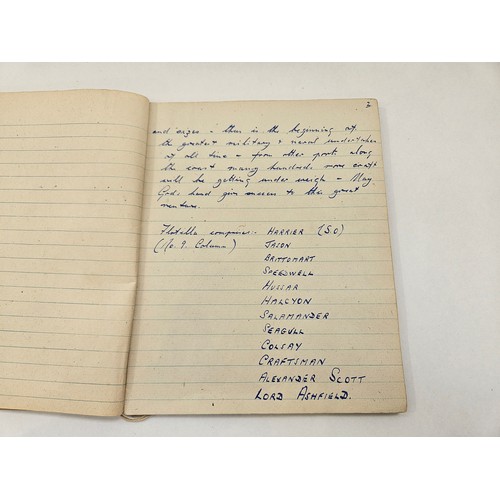 2
and orges - this is the beginning of
the greatest military & naval undertaken
of all time - from other ports along
the coast many hundreds more craft
will be getting under weigh - May
Gods hand give success to this great
venture.
Flotilla comprises:- HARRIER (S.O)
(No. 9. Column) JASON
BRITTOMART
SPEEDWELL
HUSSAR
HALCYON
SALAMANDER
SEAGULL
COLSAY
CRAFTSMAN
ALEXANDER SCOTT
LORD ASHFIELD.